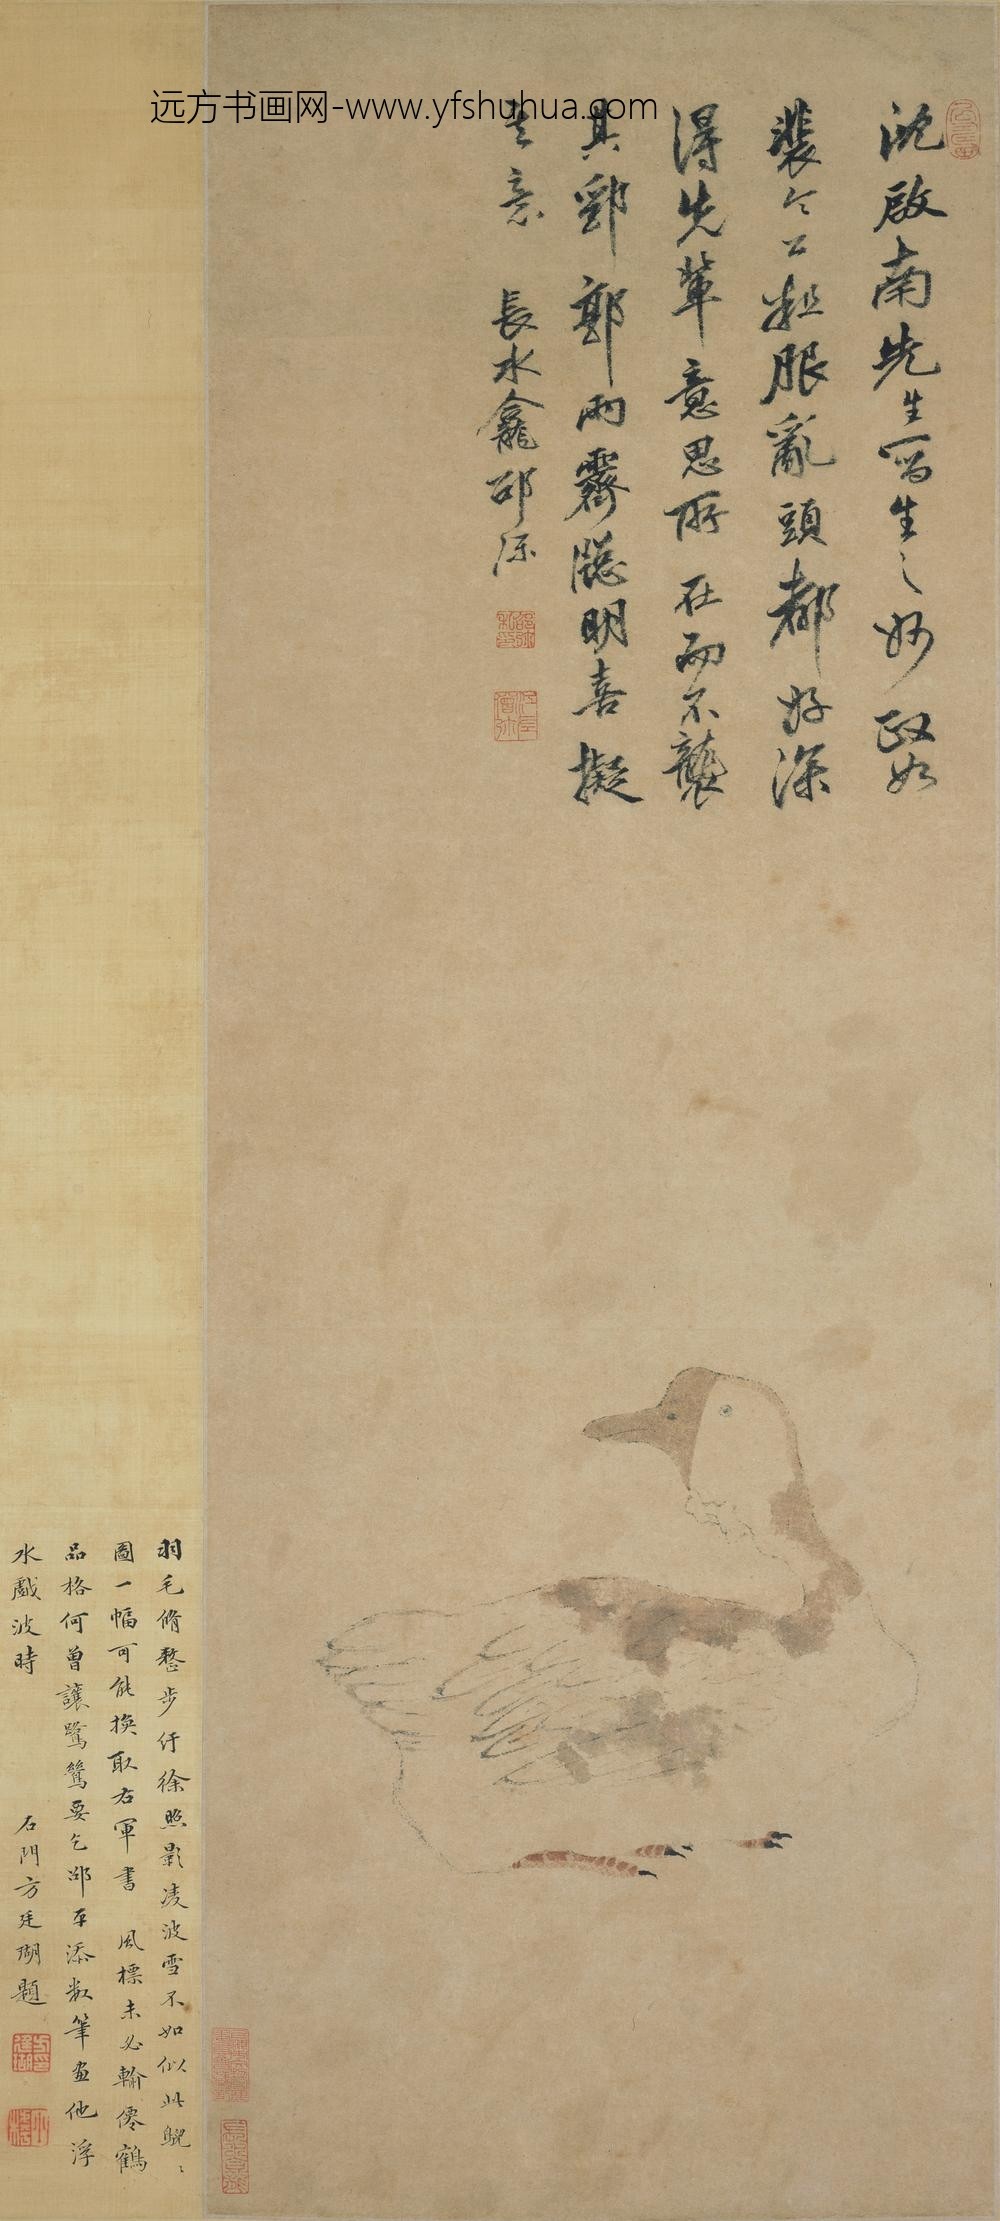 远方书画网-www.yfshuhua.com
沈啟南先生寫生之妙政如
裴令公粗服亂頭都好深
得先輩意思所在而不襲
其郛郭雨霽牕明喜擬
其意 長水龕邵彌
羽毛脩整步行徐照影凌波雪不如似此鵝鵝
圖一幅可能換取右軍書 風標未必輸僊鶴
品格何曾讓鷺鷥要乞邵平添數筆畫他浮
水戲波時 石門方廷瑚題